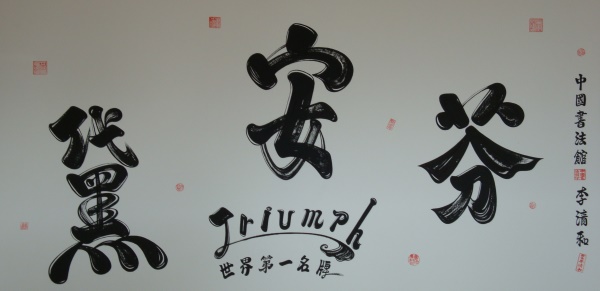 黛安芬
Triumph
世界第一名牌
中國書法館 李清和